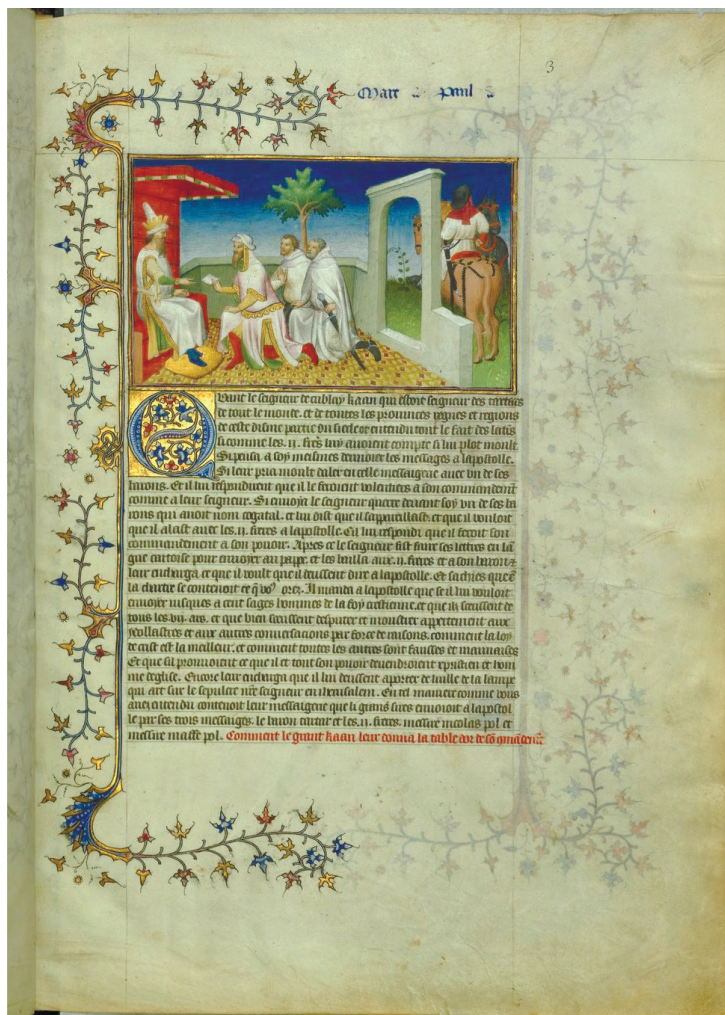 3
Marc Paul
Quant le seigneur de cublay kaan qui estoit seigneur des tartars
de tout le monde. et de toutes les prouinces regnes et regions
de ceste partie du siecle ot entendu tout le fait des latins
si comme les .ii. freres luy auoient compte si lui plot moult
Si pensa a soy meismes denuoier les messages a lapostolle.
Si leur pria moult daler en celle messaigerie auec vn de ses
barons. Et il lui respondirent que il le feroient volentiers a son commandement
comme a leur seigneur. Si enuoya le seigneur querre deuant soy vn de ses ba
rons qui auoit nom cogatal. et lui dist que il sappareillast. et que il vouloit
que il alast auec les .ii. freres a lapostolle. Cil lui respondi que il feroit son
commandement a son pouoir. Apres ce le seigneur fist faire ses lettres en lan
gue tartoise pour enuoyer au pappe. et les bailla aux .ii. freres et a son baron et
leur encharga ce que il voult que il deussent dire a lapostolle. Et sachies que en
la chartre se contenoit ce que vous orez. Il manda a lapostolle que se il lui vouloit
enuoyer iusques a cent sages hommes de la foy crestienne. et que ilz sceussent de
tous les .vij. ars. et que bien sceussent desputer et monstrer appertement aux
ydollastres et aux autres conuersacions par force de raisons. comment la loy
de crist est la meilleur. et comment toutes les autres sont fausses et mauuaises
Et que sil prouuoient ce que il et tout son pouoir deuendroient crestien et hom
me deglise. Encore leur encharga que il lui deussent aporter de huille de la lampe
qui art sur le sepulcre nostre seigneur en iherusalem. En tel maniere comme vous
auez entendu contenoit leur messaigerie que li grans sires enuoioit a lapostol
le par ses trois messaiges. le baron tartar et les .ii. freres. messire nicolas pol et
messire maffe pol. Comment le grant kaan leur donna la table dor de son commandement